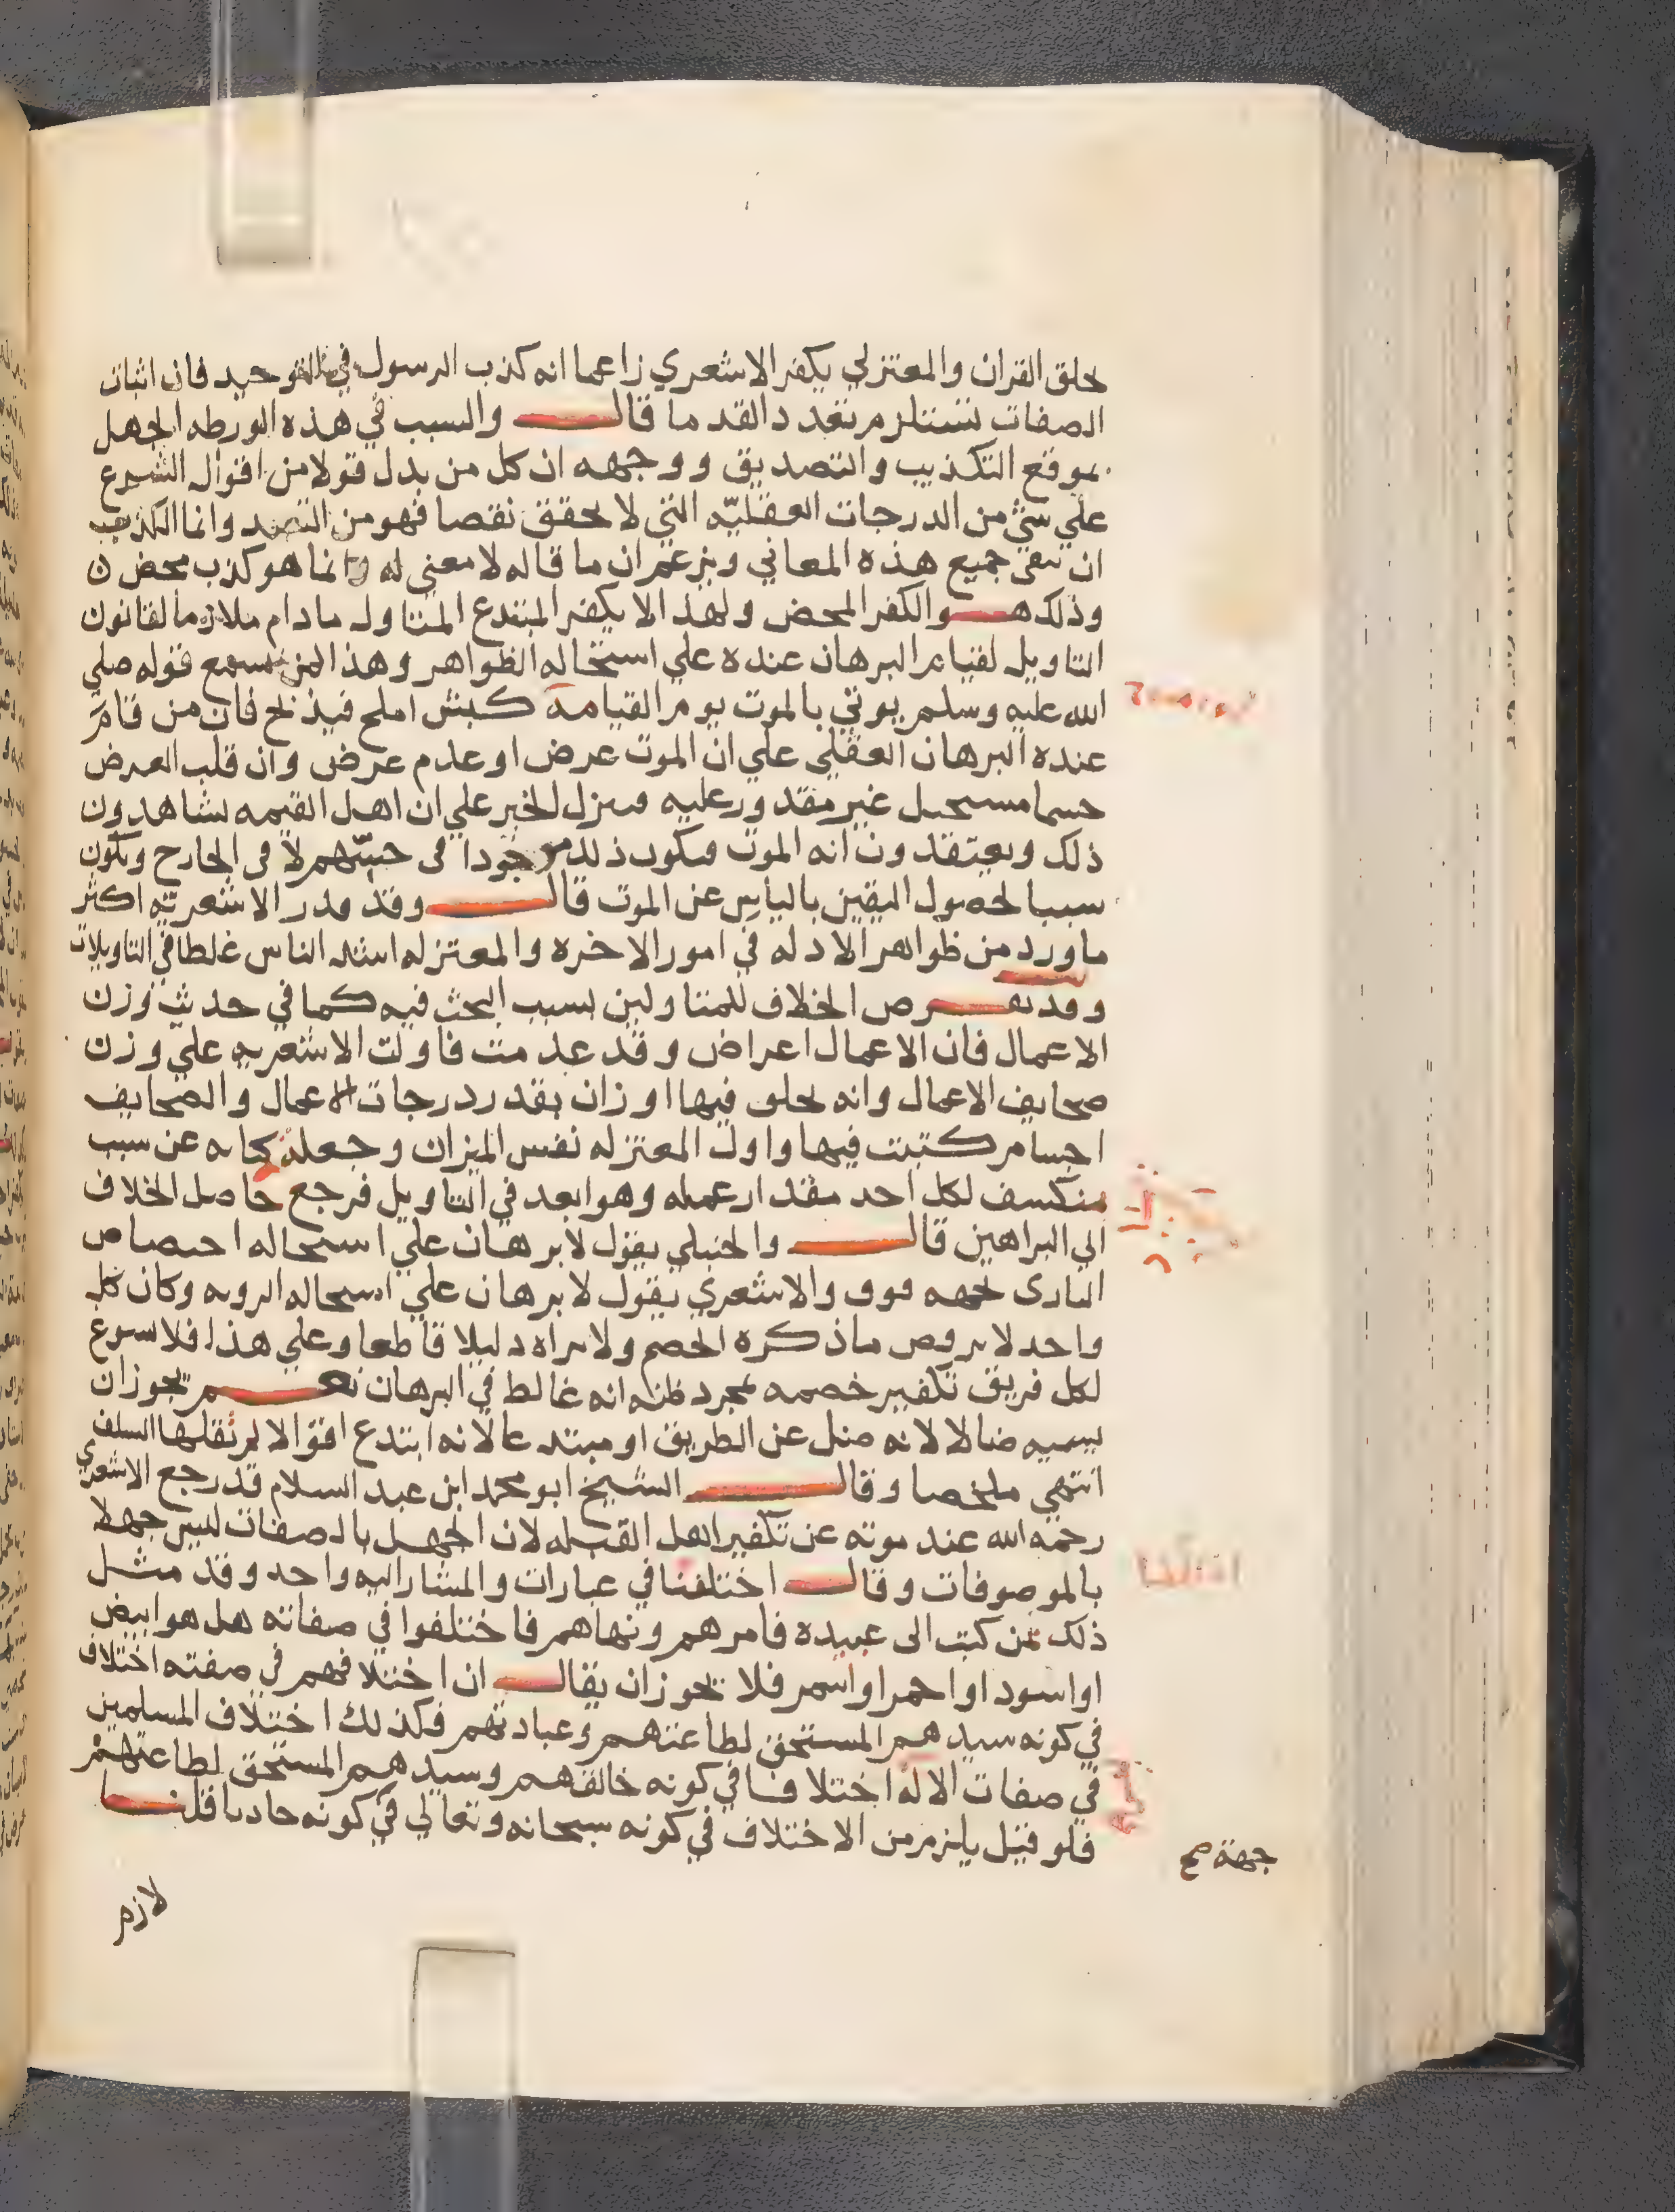 بخلق القران والمعتزلي يكفر الاشعري زاعما انه كذب الرسول في التوحيد فان اثبات
الصفات تستلزم تعدد القدما قال والسبب في هذه الورطه الجهل
بموقع التكذيب والتصديق ووجهه ان كل من بدل قولا من اقوال الشرع
علي شئ من الدرجات العقليه التي لا تحقق نقصا فهو من التصد وانما الكذب
ان ينفي جميع هذه المعاني ويزعم ان ما قاله لا معني له وانما هو كذب محض
وذلك هو الكفر المحض ولهذا لا يكفر المبتدع المتاول ما دام ملازما لقانون
التاويل لقيام البرهان عنده علي استحاله الظواهر وهذا لمن يسمع قوله صلي
الله عليه وسلم يوتي بالموت يوم القيامة كبش املح فيذبح فان من قام
عنده البرهان العقلي علي ان الموت عرض او عدم عرض وان قلب العرض
جسما مستحيل غير مقدور عليه فينزل الخبر علي ان اهل القيمه يشاهدون
ذلك ويعتقدون انه الموت فيكون ذلك موجودا في حسهم لا في الخارج ويكون
سببا لحصول اليقين بالياس عن الموت قال وقد قدر الاشعريه اكثر
ما ورد من ظواهر الادله في امور الاخره والمعتزله اشد الناس غلطا في التاويلات
وقد يعرض الخلاف للمتاولين بسبب البحث فيه كما في حديث وزن
الاعمال فان الاعمال اعراض وقد عدمت فاولت الاشعريه علي وزن
صحايف الاعمال وانه يخلق فيها اوزان بقدر درجات الاعمال والصحايف
اجسام كتبت فيها واول المعتزله نفس الميزان وجعله كنايه عن سبب
ينكشف لكل احد مقدار عمله وهو ابعد في التاويل فرجع حاصل الخلاف
الي البراهين قال والحنبلي يقول لا برهان علي استحاله اختصاص
الباري بجهه فوق والاشعري يقول لا برهان علي استحاله الرويه وكان كل
واحد لا يرضي ما ذكره الخصم ولا يراه دليلا قاطعا وعلي هذا فلا يسوغ
لكل فريق تكفير خصمه بمجرد ظنه انه غالط في البرهان نعم يجوز ان
يسميه ضالا لانه ضل عن الطريق او مبتدعا لانه ابتدع اقوالا لم تقلها السلف
انتهي ملخصا وقال الشيخ ابو محمد ابن عبد السلام قد رجع الاشعري
رحمه الله عند موته عن تكفير اهل القبله لان الجهل بالصفات ليس جهلا
بالموصوفات وقال اختلفنا في عبارات والمشار اليه واحد وقد مثل
ذلك بمن كتب الى عبيده فامرهم ونهاهم فاختلفوا في صفاته هل هو ابيض
او اسود او احمر او اسمر فلا يجوز ان يقال ان اختلافهم في صفته اختلاف
في كونه سيدهم المستحق لطاعتهم وعبادتهم فكذلك اختلاف المسلمين
في صفات الاله اختلافا في كونه خالقهم وسيدهم المستحق لطاعتهم
فلو قيل يلزم من الاختلاف في كونه سبحانه وتعالي في كونه حادثا قلنا
جهة صح
لازم